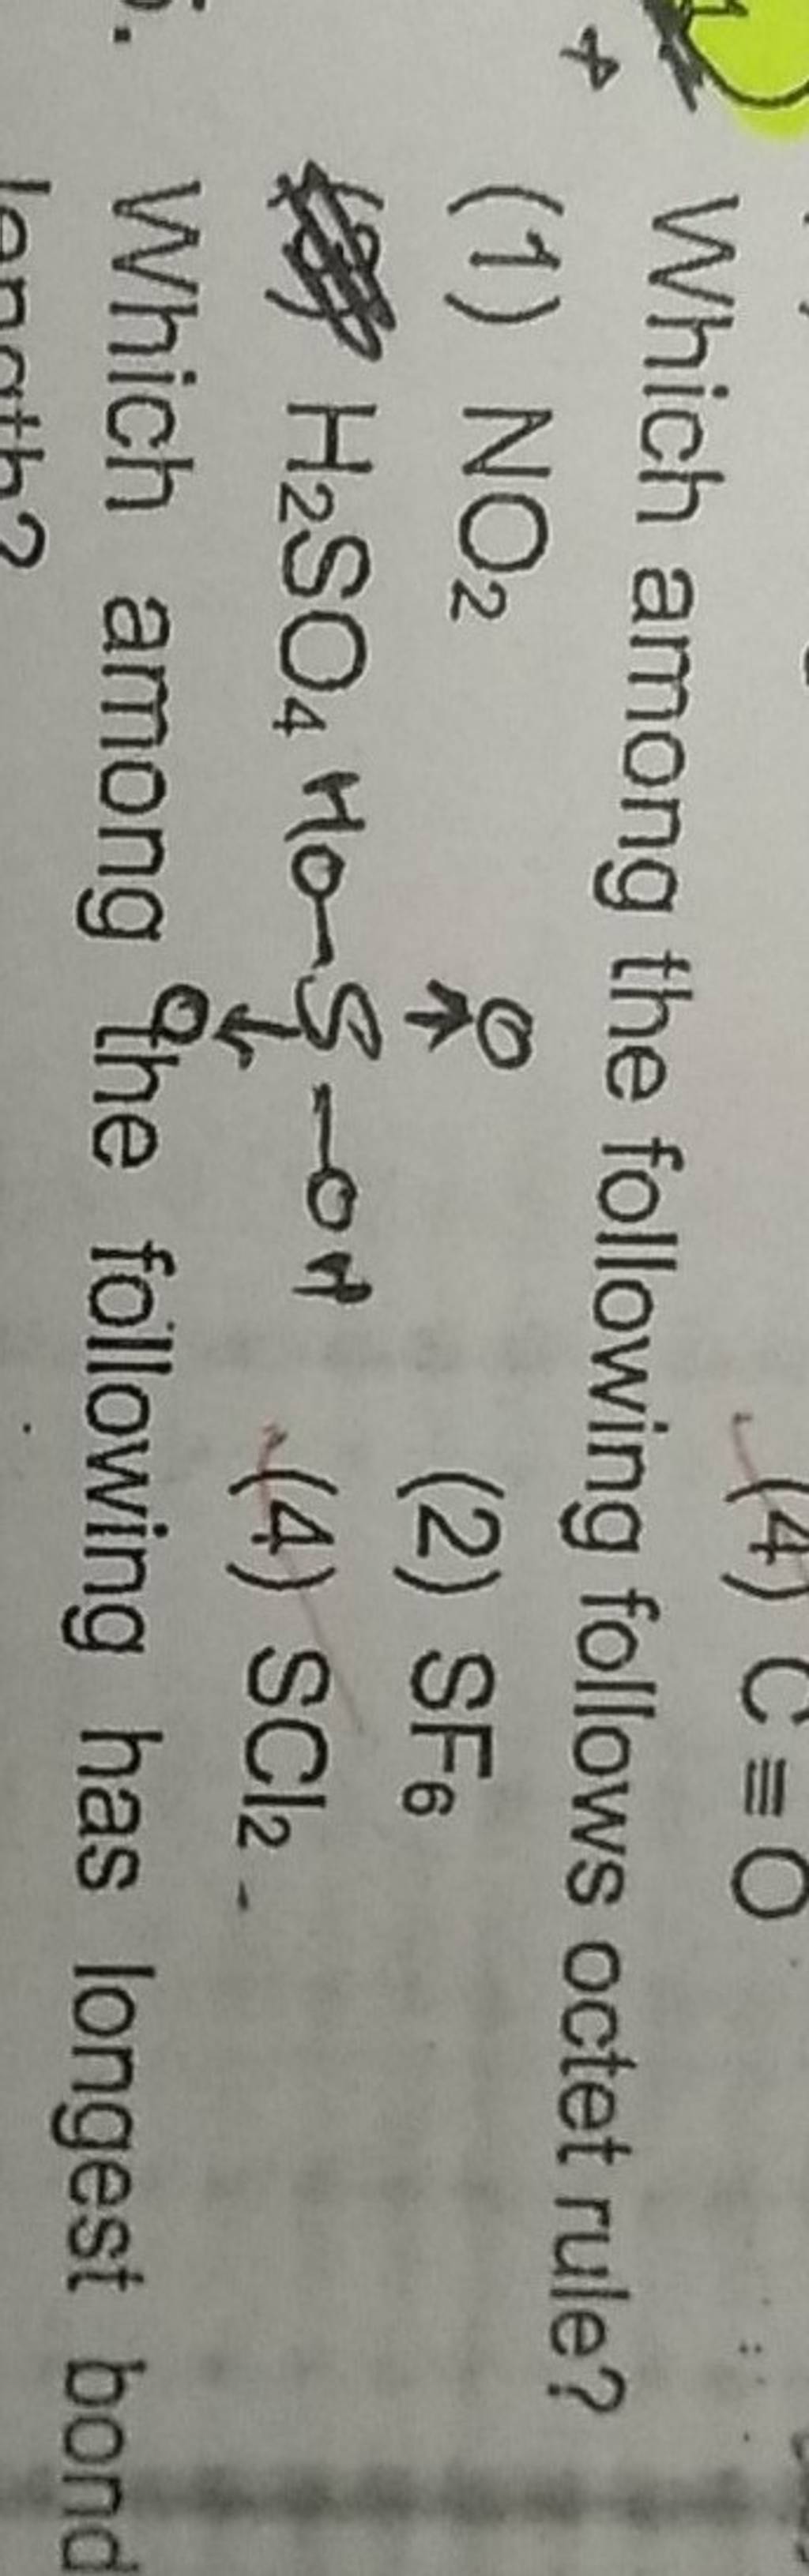 (4) C ≡ O
Which among the following follows octet rule?
(1) NO₂ (2) SF₆
H₂SO₄ HO-S-OH (4) SCl₂ -
O
O
Which among the following has longest bond
length?